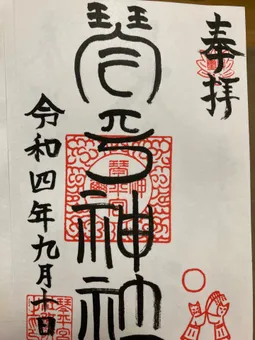 奉拝
琴平神社
令和四年九月十日